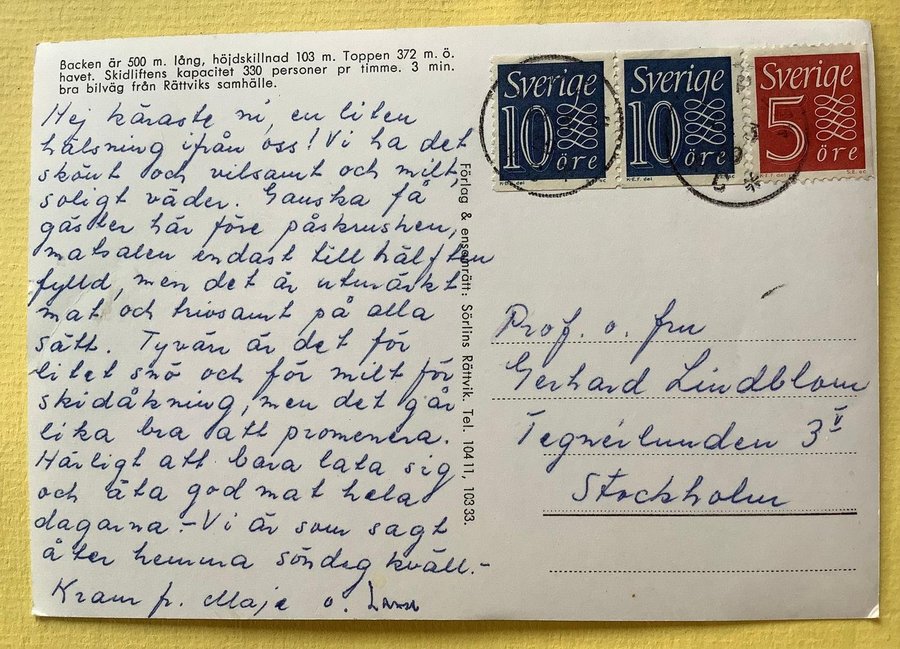 Backen är 500 m. lång, höjdskillnad 103 m. Toppen 372 m. ö.
havet. Skidliftens kapacitet 330 personer pr timme. 3 min.
bra bilväg från Rättviks samhälle.
Hej käraste ni, en liten
hälsning ifrån oss! Vi ha det
skönt och vilsamt och milt,
soligt väder. Ganska få
gäster här före påskrushen,
matsalen endast till hälften
fylld, men det är utmärkt
mat, och trivsamt på alla
sätt. Tyvärr är det för
litet snö och för milt för
skidåkning, men det går
lika bra att promenera.
Härligt att bara lata sig
och äta god mat hela
dagarna. - Vi är som sagt
åter hemma söndag kväll. -
Kram fr. Maja o.
Förlag & ensamrätt: Sörlins Rättvik. Tel. 104 11, 103 33.
Sverige
10 öre
Sverige
10 öre
Sverige
5 öre
Prof. o. fru
Gerhard Lindblom
Tegnérlunden 3 V
Stockholm